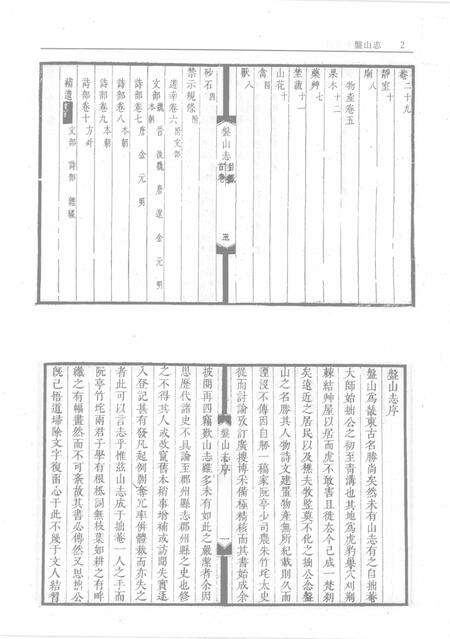 盤山志 2
卷二十九
靜室十
廟八
物產卷五
果木十二
藥艸七
山花十
禽四
獸八
盤山志
五
砂石四
禁示規條 附
遊幸卷六 附文部
文部 本朝 魏 晉 後魏 唐 遼 金 元 明
詩部卷七 唐 金 元 明
詩部卷八 本朝
詩部卷九 本朝
詩部卷十 方外
補遺 文部 詩部 雜綴
盤山志序
盤山為薊東古名勝尚矣然未有山志有之自拙菴
大師始拙公之初至青溝也其地為虎豹窟穴刈荊
棘結艸屋以居而虎不敢害且從今已成一梵剎
矣遠近之居民以及樵夫牧豎莫不化之拙公念盤
山之名勝其人物詩文建置物產無所紀載則久而
湮沒不傳因自一稿家阮亭少司農朱竹垞太史
從而討論攷訂廣搜博采備極精核而其書始成余
披閱再四竊歎山志雖多未有如此之嚴潔者今因
思歷代諸史不具論至郡州縣志郡州縣之史也修
盤山志序
一
之不得其人或攺竄舊本稍事增補或訪聞失實逐
入登記甚有發凡起例併體裁而亦失之
者此可以言志乎惟茲山志成于拙菴一人之手而
阮亭竹垞兩君子學有根柢詞無枝葉如耕之有畔
織之有幅畫然而不可紊故其書必傳然又思拙公
既已悟道掃除文字復留心于此不幾于文人結習